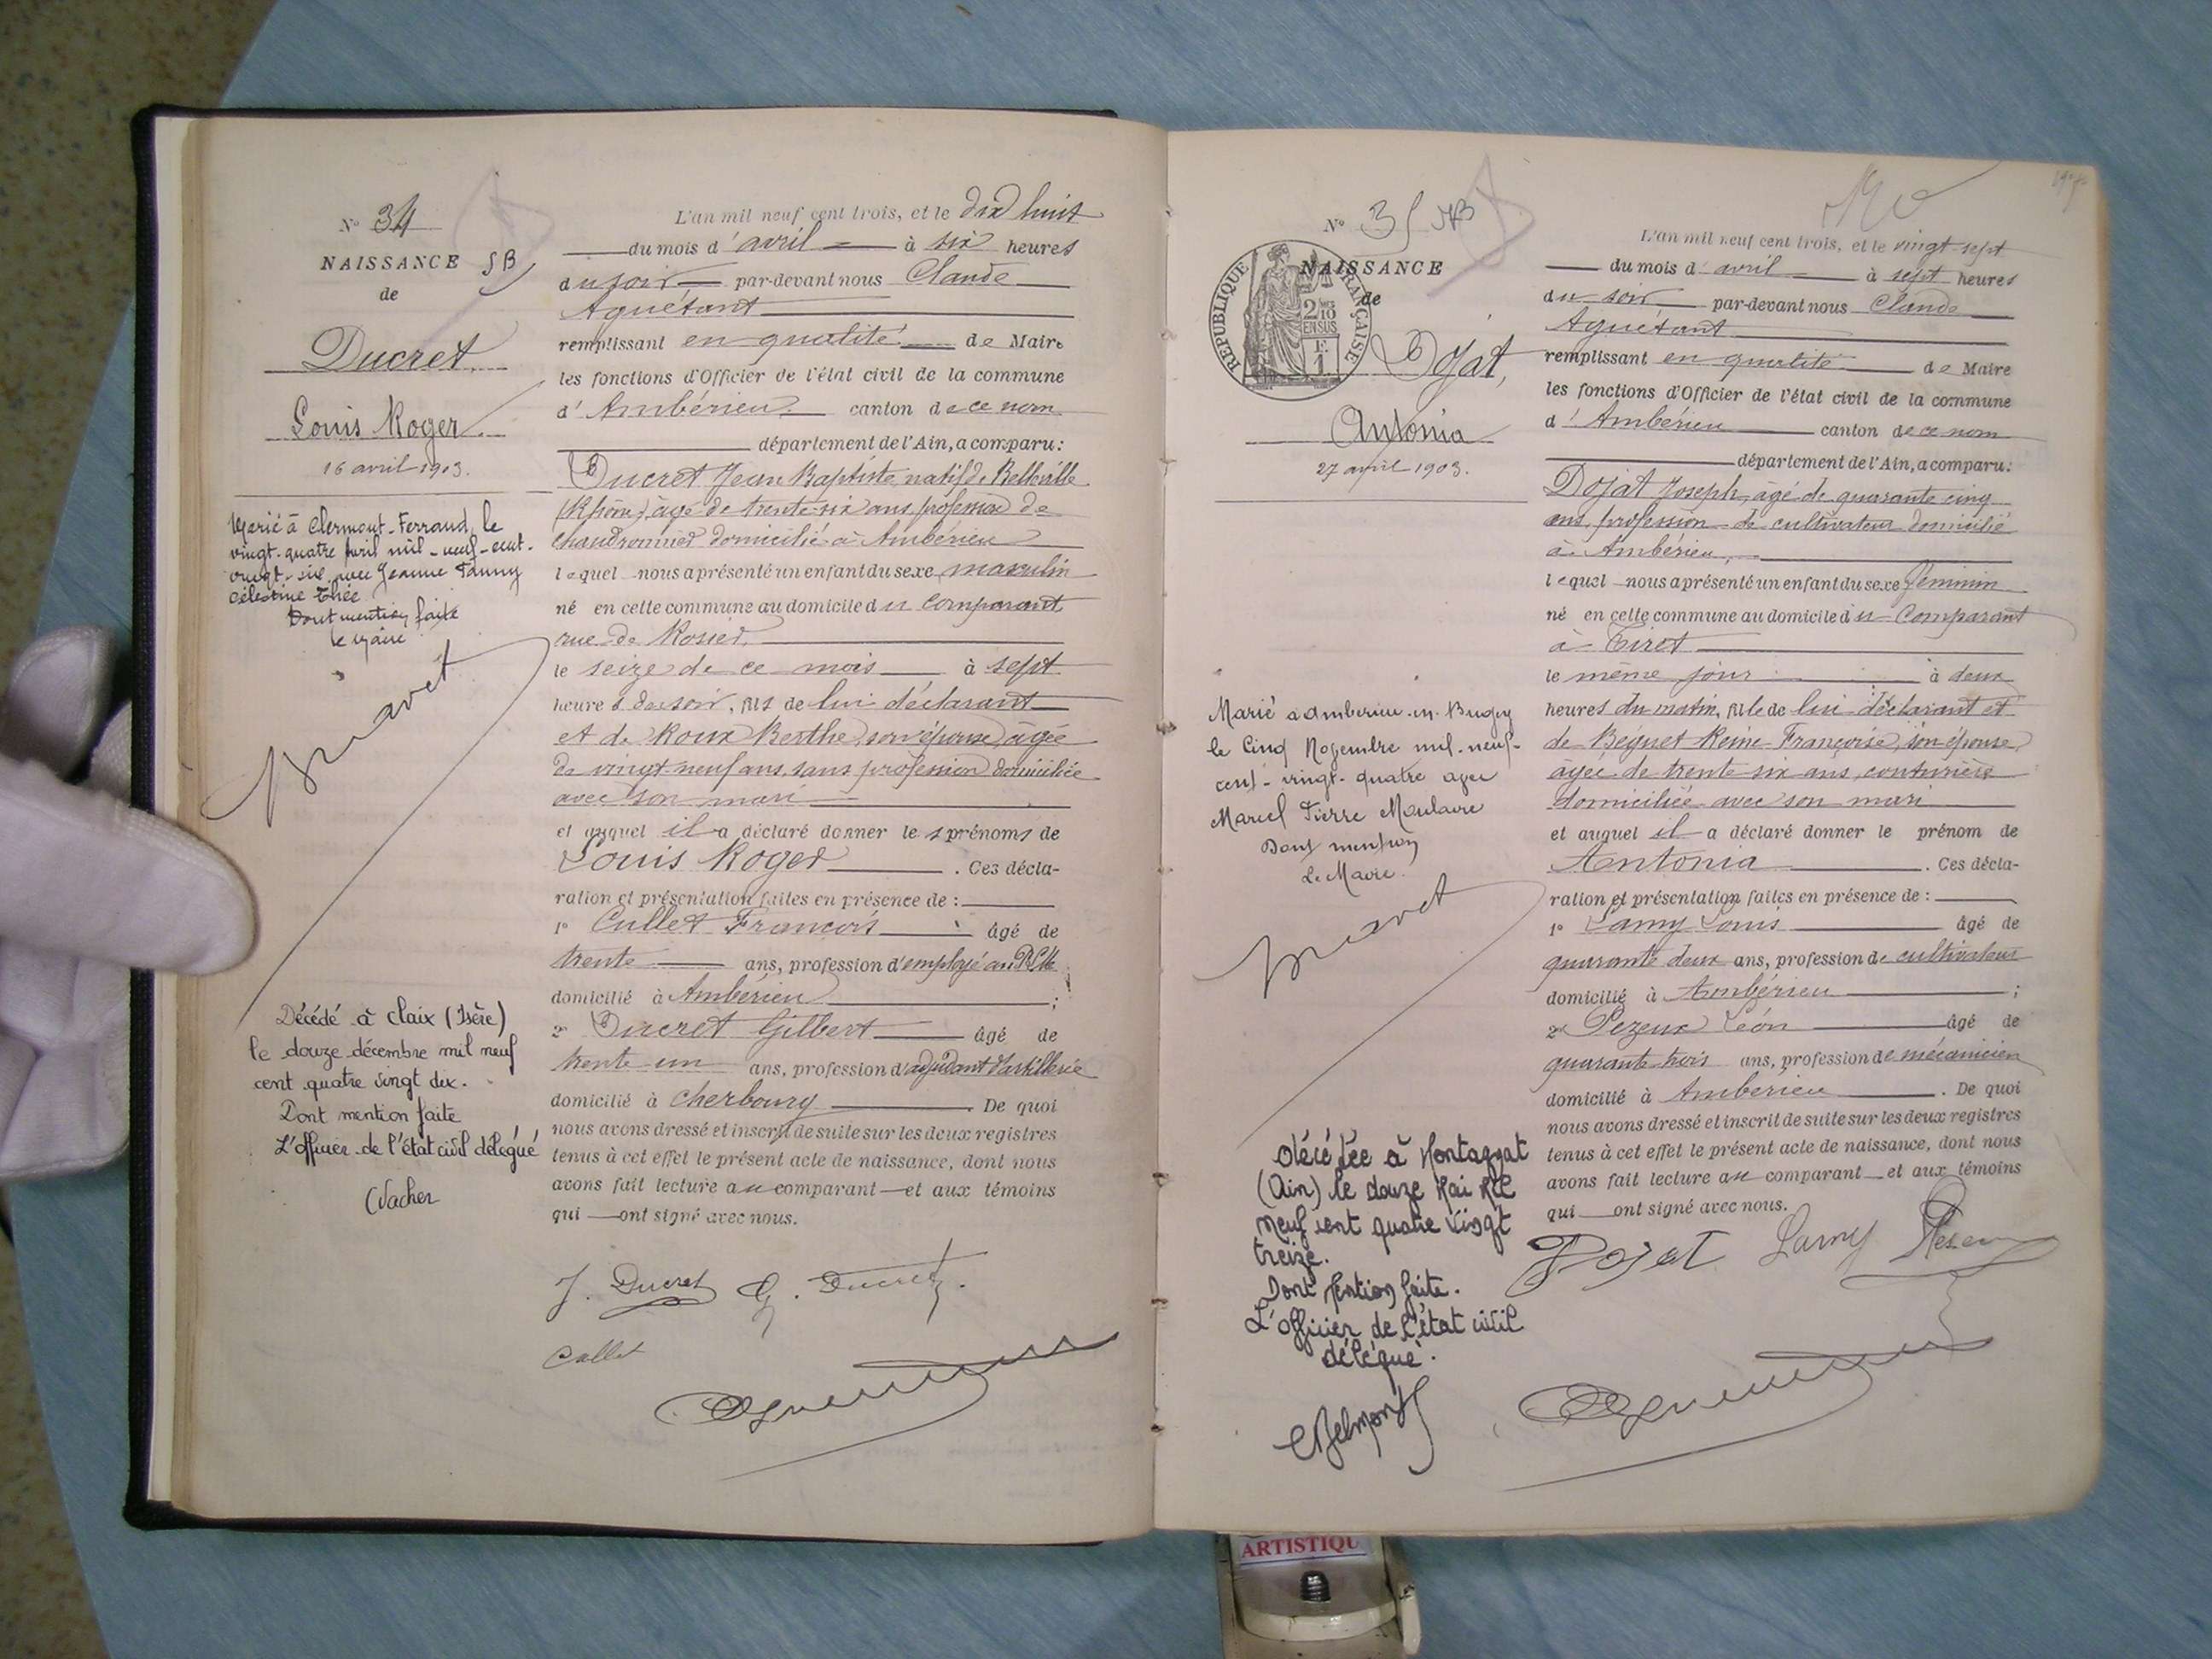 N° 34
NAISSANCE SB
de
Ducret
Louis Roger
16 avril 1903.
Marié à Clermont-Ferrand, le
vingt-quatre avril mil-neuf-cent-
vingt-six avec Jeanne Fanny
Célestine Thée
Dont mention faite
le Maire
Décédé à Claix (Isère)
le douze décembre mil neuf
cent quatre vingt dix.
Dont mention faite
L'officier de l'état civil délégué
Vacher
L'an mil neuf cent trois, et le dix huit
du mois d'avril à six heures
du soir par-devant nous Claude
Aguétant
remplissant en qualité de Maire
les fonctions d'Officier de l'état civil de la commune
d'Ambérieu canton de ce nom
département de l'Ain, a comparu:
Ducret Jean Baptiste, natif de Belleville
(Rhône), âgé de trente-six ans, profession de
chaudronnier domicilié à Ambérieu
lequel nous a présenté un enfant du sexe masculin
né en cette commune au domicile du comparant
rue de Rosier
le seize de ce mois à sept
heures du soir, fils de lui déclarant
et de Roux Berthe, son épouse, âgée
de vingt-neuf ans, sans profession domiciliée
avec son mari
et auquel il a déclaré donner les prénoms de
Louis Roger. Ces décla-
ration et présentation faites en présence de :
1° Cullet François âgé de
trente ans, profession d'employé au PLM
domicilié à Ambérieu ;
2° Ducret Gilbert âgé de
trente un ans, profession d'adjudant d'artillerie
domicilié à Cherbourg. De quoi
nous avons dressé et inscrit de suite sur les deux registres
tenus à cet effet le présent acte de naissance, dont nous
avons fait lecture au comparant et aux témoins
qui ont signé avec nous.
J. Ducret G. Ducret.
Cullet
N° 35
NAISSANCE
de
RÉPUBLIQUE FRANÇAISE
2/10 EN SUS
Dojat,
Antonia
27 avril 1903.
Marié à Amberieu-en-Bugey
le Cinq Novembre mil-neuf-
cent-vingt-quatre avec
Marcel Pierre
Dont mention
Le Maire.
Décédée à Montagnat
(Ain) le douze Mai Mil
neuf cent quatre vingt
treize.
Dont Mention faite.
L'officier de l'état civil
délégué.
Belmont
L'an mil neuf cent trois, et le vingt-sept
du mois d'avril à sept heures
du soir par-devant nous Claude
Aguétant
remplissant en qualité de Maire
les fonctions d'Officier de l'état civil de la commune
d'Ambérieu canton de ce nom
département de l'Ain, a comparu:
Dojat Joseph, âgé de quarante cinq
ans, profession de cultivateur domicilié
à Ambérieu,
lequel nous a présenté un enfant du sexe féminin
né en cette commune au domicile du Comparant
à Tiret
le même jour à deux
heures du matin, fille de lui déclarant et
de Beguet Reine Françoise, son épouse,
âgée de trente six ans, couturière
domiciliée avec son mari
et auquel il a déclaré donner le prénom de
Antonia. Ces décla-
ration et présentation faites en présence de :
1° Lamy Louis âgé de
quarante deux ans, profession de cultivateur
domicilié à Ambérieu ;
2° Pezeux Léon âgé de
quarante trois ans, profession de mécanicien
domicilié à Ambérieu. De quoi
nous avons dressé et inscrit de suite sur les deux registres
tenus à cet effet le présent acte de naissance, dont nous
avons fait lecture au comparant et aux témoins
qui ont signé avec nous.
Dojat Lamy
ARTISTIQU